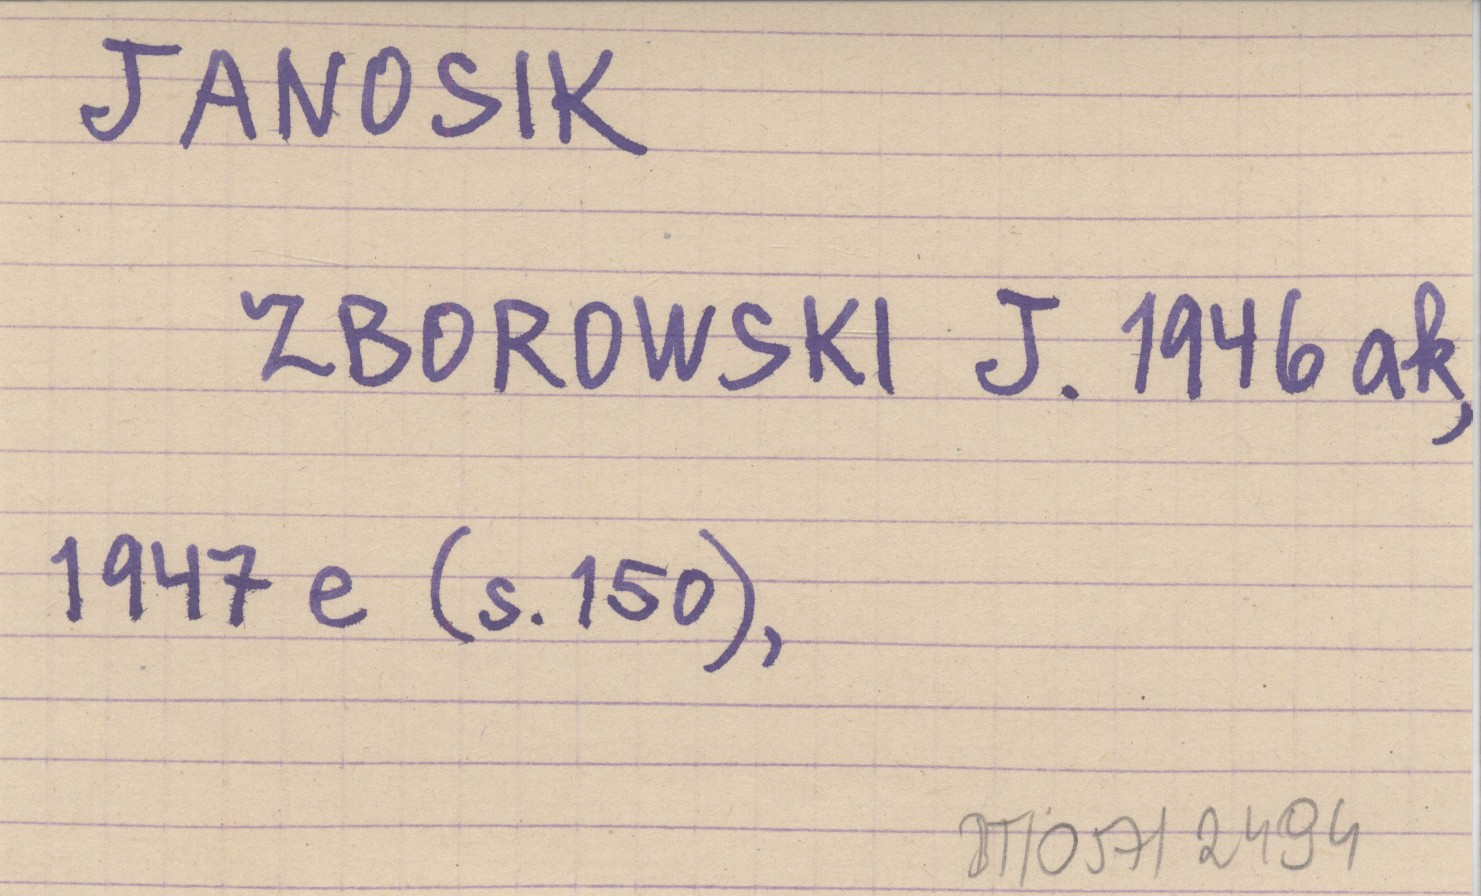 JANOSIK
ZBOROWSKI J. 1946 ak,
1947 e (s. 150),
2494